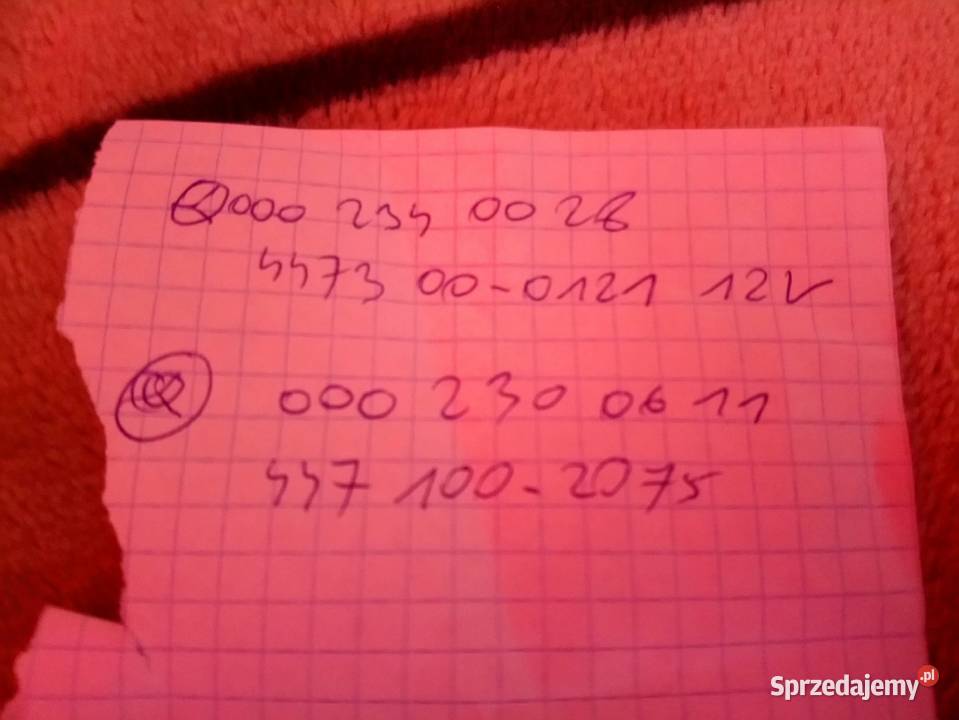 000 234 0028
4473 00-0121 12V
000 230 0611
447 100-2075
Sprzedajemy.pl